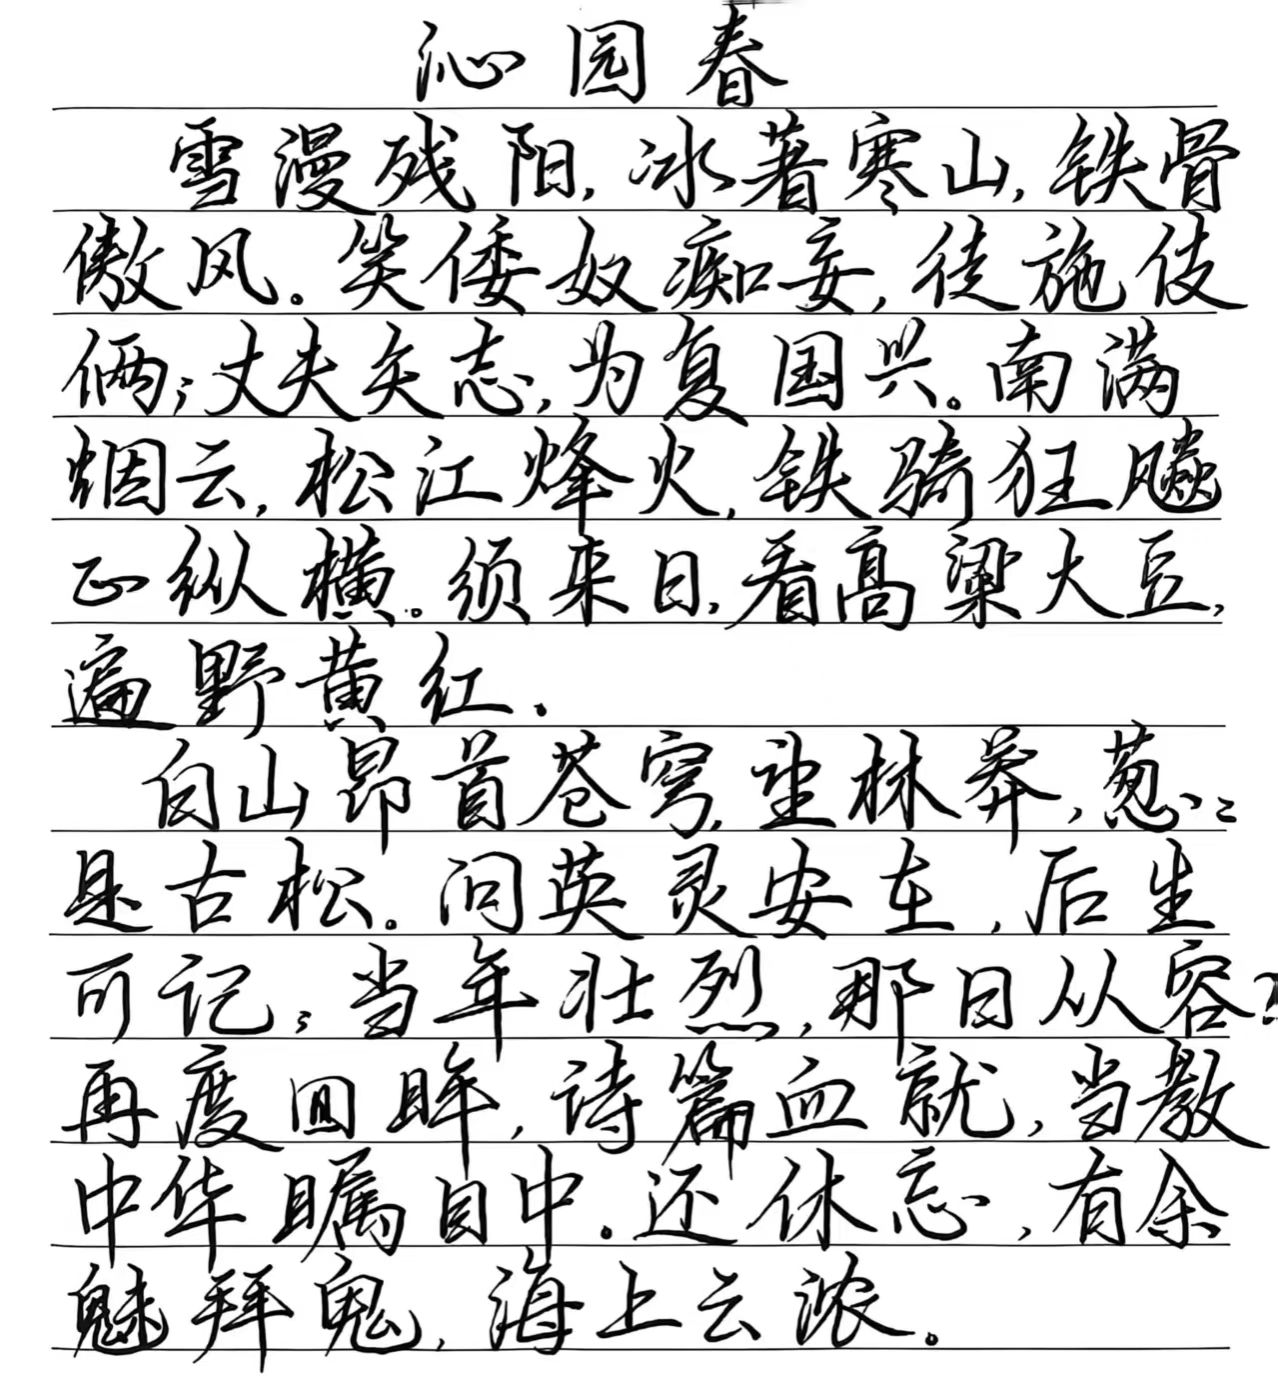 沁园春
雪漫残阳,冰著寒山,铁骨
傲风。笑倭奴痴妄,徒施伎
俩;丈夫矢志,为复国兴。南满
烟云,松江烽火,铁骑狂飚
正纵横。须来日,看高粱大豆,
遍野黄红.
白山昂首苍穹,望林莽,葱〻
是古松。问英灵安在,后生
可记;当年壮烈,那日从容?
再度回眸,诗篇血就,当教
中华瞩目中。还休忘,有余
魅拜鬼,海上云浓。